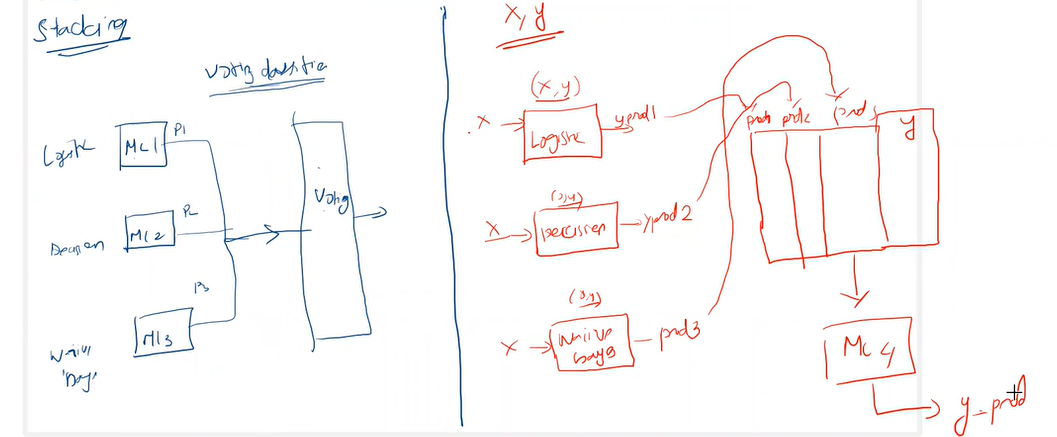 Stacking
Voting classifier
Logistic
ML1
P1
Decision
ML2
P2
Naive
Bayes
ML3
P3
Voting
X, y
(X, y)
X
Logistic
ypred1
(x,y)
X
Decision
ypred2
(x,y)
X
Naive
Bayes
pred3
pred1
pred2
pred3
y
ML4
y-pred